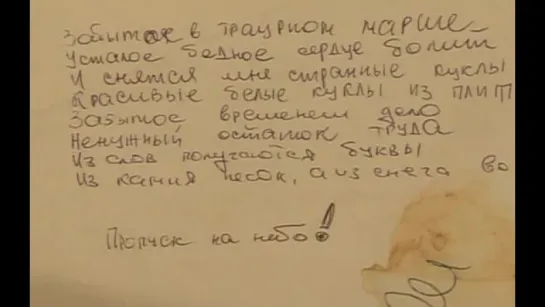 Забытое в траурном марше
Усталое бедное сердце болит
И снятся мне странные куклы
Красивые белые куклы из плит
Забытое временем дело
Ненужный остаток труда
Из слов получаются буквы
Из камня песок, а из снега во
Пропуск на небо!